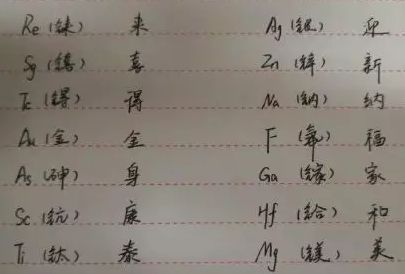 Re (铼) 来 Ag (银) 迎
Sg (𨭎) 喜 Zn (锌) 新
Tc (锝) 得 Na (钠) 纳
Au (金) 全 F (氟) 福
As (砷) 身 Ga (镓) 家
Sc (钪) 康 Hf (铪) 和
Ti (钛) 泰 Mg (镁) 美